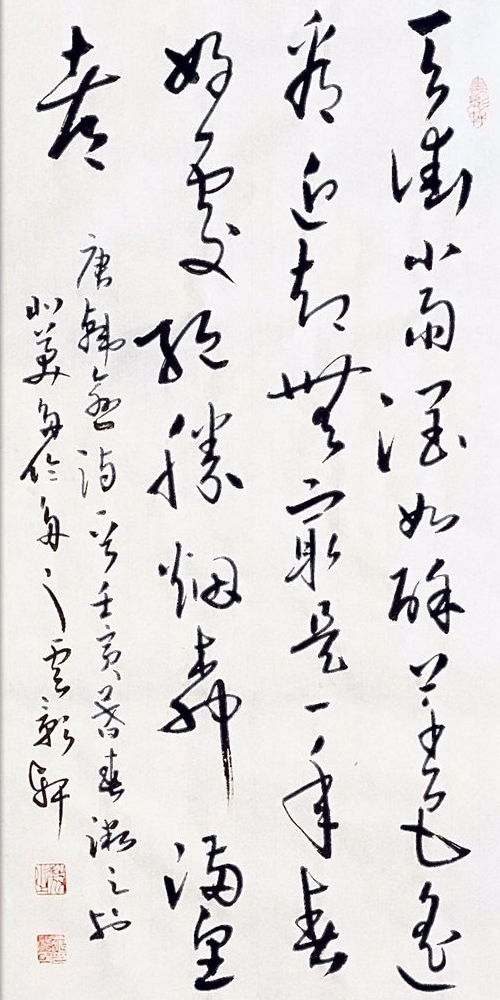 天街小雨潤如酥草色遙
看近却無最是一年春
好處絕勝烟柳滿皇
都
唐韓愈詩一首壬寅暮春之於
北美多倫多之雲影軒